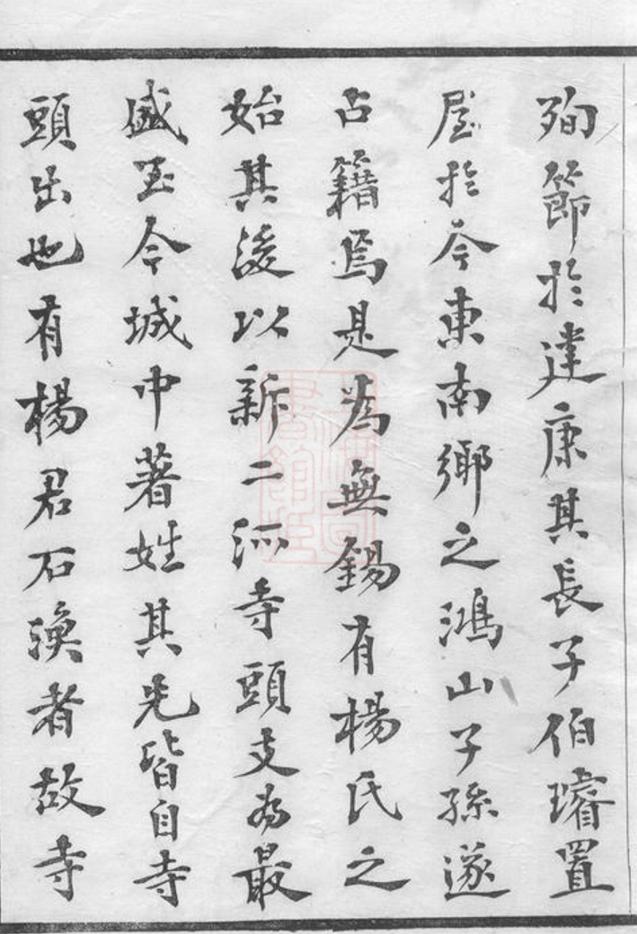 殉節於建康其長子伯璿置
屋於今東南鄉之鴻山子孫遂
占籍焉是為無錫有楊氏之
始其後以新二河寺頭支為最
盛至今城中著姓其先皆自寺
頭出也有楊君石渙者故寺